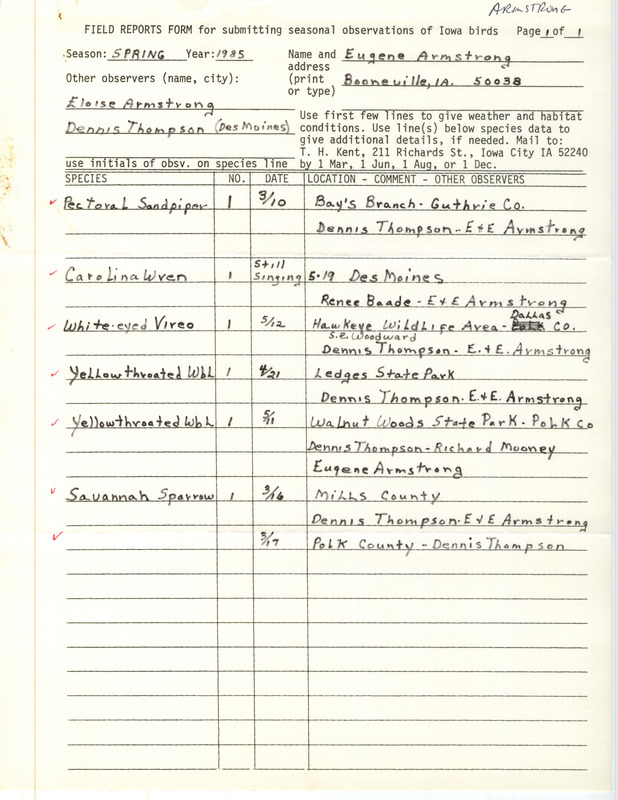 ARMSTRONG
FIELD REPORTS FORM for submitting seasonal observations of Iowa birds Page 1 of 1
Season: SPRING Year: 1985 Name and Eugene Armstrong
address
Other observers (name, city): (print Booneville, IA. 50038
or type)
Eloise Armstrong
Dennis Thompson (Des Moines)
Use first few lines to give weather and habitat
conditions. Use line(s) below species data to
give additional details, if needed. Mail to:
T. H. Kent, 211 Richards St., Iowa City IA 52240
use initials of obsv. on species line by 1 Mar, 1 Jun, 1 Aug, or 1 Dec.
SPECIES NO. DATE LOCATION - COMMENT - OTHER OBSERVERS
✓ Pectoral Sandpiper 1 3/10 Bay's Branch - Guthrie Co.
Dennis Thompson - E & E Armstrong
Still
✓ Carolina Wren 1 Singing 5-19 Des Moines
Renee Baade - E & E Armstrong
Dallas
✓ White-eyed Vireo 1 5/12 Hawkeye Wildlife Area - Polk Co.
S.E. Woodward
Dennis Thompson - E. & E. Armstrong
✓ Yellowthroated Wbl 1 4/21 Ledges State Park
Dennis Thompson. E. & E. Armstrong
✓ Yellowthroated Wbl 1 5/11 Walnut Woods State Park - Polk Co
Dennis Thompson - Richard Mooney
Eugene Armstrong
✓ Savannah Sparrow 1 3/16 Mills County
Dennis Thompson - E & E Armstrong
✓ 3/17 Polk County - Dennis Thompson